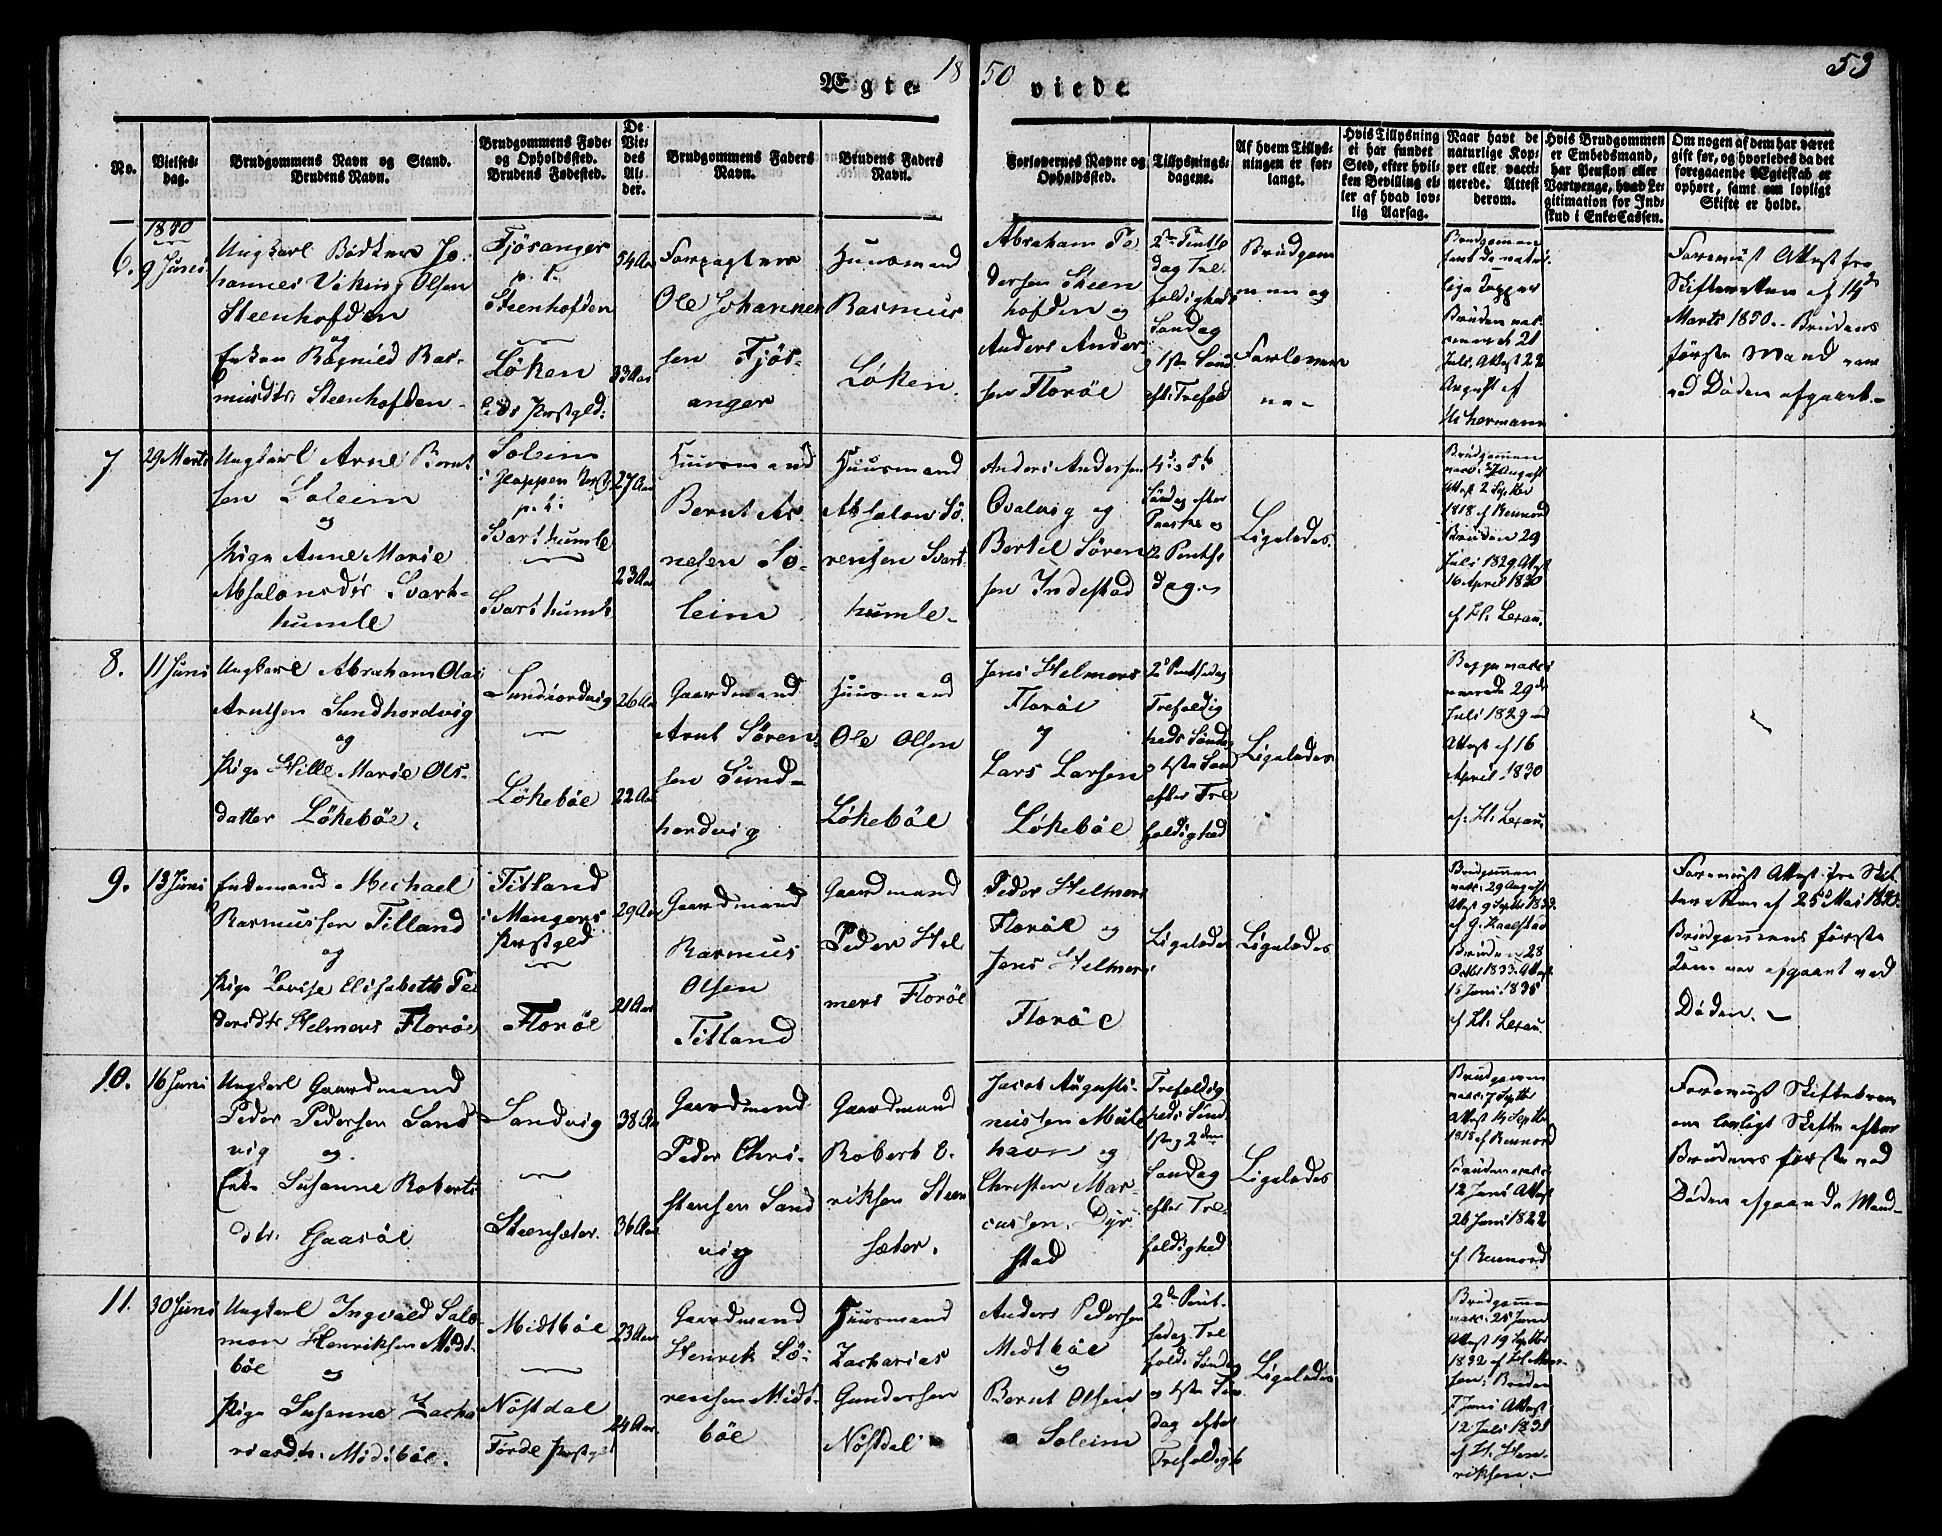 1850
53
Ægteviede
No.
Vielses-
dag.
Brudgommens Navn og Stand.
Brudens Navn.
Brudgommens Føde-
og Opholdssted.
Brudens Fødested.
De
Vie-
des
Al-
der.
Brudgommens Faders
Navn.
Brudens Faders
Navn.
Forlovernes Navne og
Opholdssted.
Tillysnings-
dagene.
Af hvem Tillys-
ningen er for-
langt.
Hvis Tillysning
ei har fundet
Sted, efter hvil-
ken Bevilling el-
ler af hvad lov-
lig Aarsag.
Naar havt de
naturlige Kop-
per eller vacci-
nerede. Attest
derom.
Hvis Brudgommen
er Embedsmand,
har Pension eller
Vartpenge, hvad Le-
gitimation for Ind-
skud i Enke-Cassen.
Om nogen af dem har været
gift før, og hvorledes da det
foregaaende Ægteskab er
ophørt, samt om lovligt
Skifte er holdt.
1850
6.
9 Juni
Ungkarl Bødker Jo-
hannes Viking Olsen
Steenhofden
og
Enken Ragnild Ras-
musdtr Steenhofden
Fjösanger
p. t.
Steenhofden
Löken
Eids Prstgld:
54 Aar
33 Aar
Forpagter
Ole Johannes
sen Fjös-
anger
Huusmand
Rasmus
Löken.
Abraham Pe
dersen Steen
hofden og
Anders Ander-
sen Floröe
2den Pintse
dag Tre-
foldigheds
Søndag
og 1ste Sønd
eft: Trefold
Brudgom
men og
Forlover
ne
Brudgommen
havt de natur-
lige Kopper
Bruden vac-
21
Juli, Attest 22
August af
Forevist Attest fra
Skifteretten af 14de
Marts 1850. Brudens
første Mand var
ved Døden afgaaet.
7
29 Marts
Ungkarl Arne Bernt
sen Soleim
og
Pige Anne Marie
Absalonsdtr Svart-
humle
Soleim
i Gloppen Prstg
p. t.
Svarthumle
Svarthumle
27 Aar
23 Aar
Huusmand
Bernt Ar-
nesen So-
leim
Huusmand
Absalon Sö-
rensen Svart
humle
Anders Andersen
Qvalvig og
Bertel Sören
sen Indestad
4de og 5te
Søndag efter
Paaske og
2 Pintse
dag
Ligeledes.
Brudgommen
vac: 27 August
Attest 2 Septbr
1818 af Rennord
Bruden 29
Juli 1829 Attest
16 April 1830
af Kl. Lexau.
8.
11 Juni
Ungkarl Abraham Olai
Arntsen Sundhordvig
og
Pige Hille Marie Ols-
datter Lökeböe.
Sundhordvig
Lökeböe
26 Aar
22 Aar
Gaardmand
Arnt Sören-
sen Sund-
hordvig
Huusmand
Ole Olsen
Lökeböe
Jens Helmers
Floröe
og
Lars Larsen
Lökeböe
2d Pintsedag
Trefoldig
heds Sønda
og 1ste Søn
efter Tre
foldighed
Ligeledes
Begge vacci-
nerede 29de
Juli 1829 ved
Attest af 16
April 1830
af Kl. Lexau.
9.
13 Juni
Enkemand Michael
Rasmussen Titland
og
Pige Lovise Elisabeth Pe
dersdtr Helmers Floröe
Titland
i Mangers
Prstgld
Floröe
29 Aar
21 Aar
Gaardmand
Rasmus
Olsen
Titland
Gaardmand
Peder Hel
mers Floröe
Peder Helmers
Floröe og
Jens Helmers
Floröe
Ligeledes
Ligeledes
Brudgommen
vac: 29 August
Attest 9 Septbr
Bruden 28
Octbr 1833. Attest
15 Juni 1835
af Kl. Lexau.
Forevist Attest fra Skif-
teretten af 25de Mai 1850.
Brudgommens første
Kone var afgaaet ved
Døden.
10.
16 Juni
Ungkarl Gaardmand
Peder Pedersen Sand
vig og
Enke Susanne Roberts
dtr. Gaasöe
Sandvig
Steensæter.
38 Aar
36 Aar
Gaardmand
Peder Chri-
stensen Sand
vig
Gaardmand
Robert E-
riksen Steen
sæter.
Jacob Augusti-
nussen Mule
havn og
Christen Mar-
cussen Dyr
stad
Trefoldig
heds Sønd
1ste og 2den
Søndag
efter Tre-
foldighed
Ligeledes
Brudgommen
vac: 7 Septbr
Attest 14 Septbr
1818 af Rennord
Bruden vacc:
12 Juni Attest
26 Juni 1822
af Rennord
Forevist Skiftebrev
om lovligt Skifte efter
Brudens første ved
Døden afgaaede Mand
11.
30 Juni
Ungkarl Ingvald Salo-
mon Henriksen Midt-
böe og
Pige Susanne Zacha
riasdtr. Midtböe.
Midtböe
Nöstdal
Förde Prstgld
23 Aar
24 Aar
Gaardmand
Henrik Sö-
rensen Midt-
böe
Huusmand
Zacharias
Gundersen
Nöstdal
Anders Pedersen
Midtböe
og
Bernt Olsen
Soleim
2den Pint-
sedag Tre
folds Sønda
og 1ste Søn
dag efter
Trefoldigh
Ligeledes
Brudgommen
vac: 25 Juni
Attest 19 Septbr
1832 af
Bruden
7 Juni Attest
12 Juli 1831
af H. Hen-
riksen.